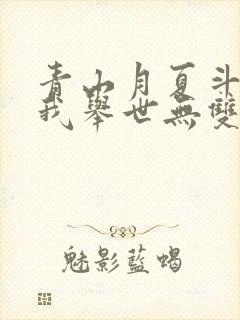 青山月夏斗
我舉世無雙
魅影藍蝎